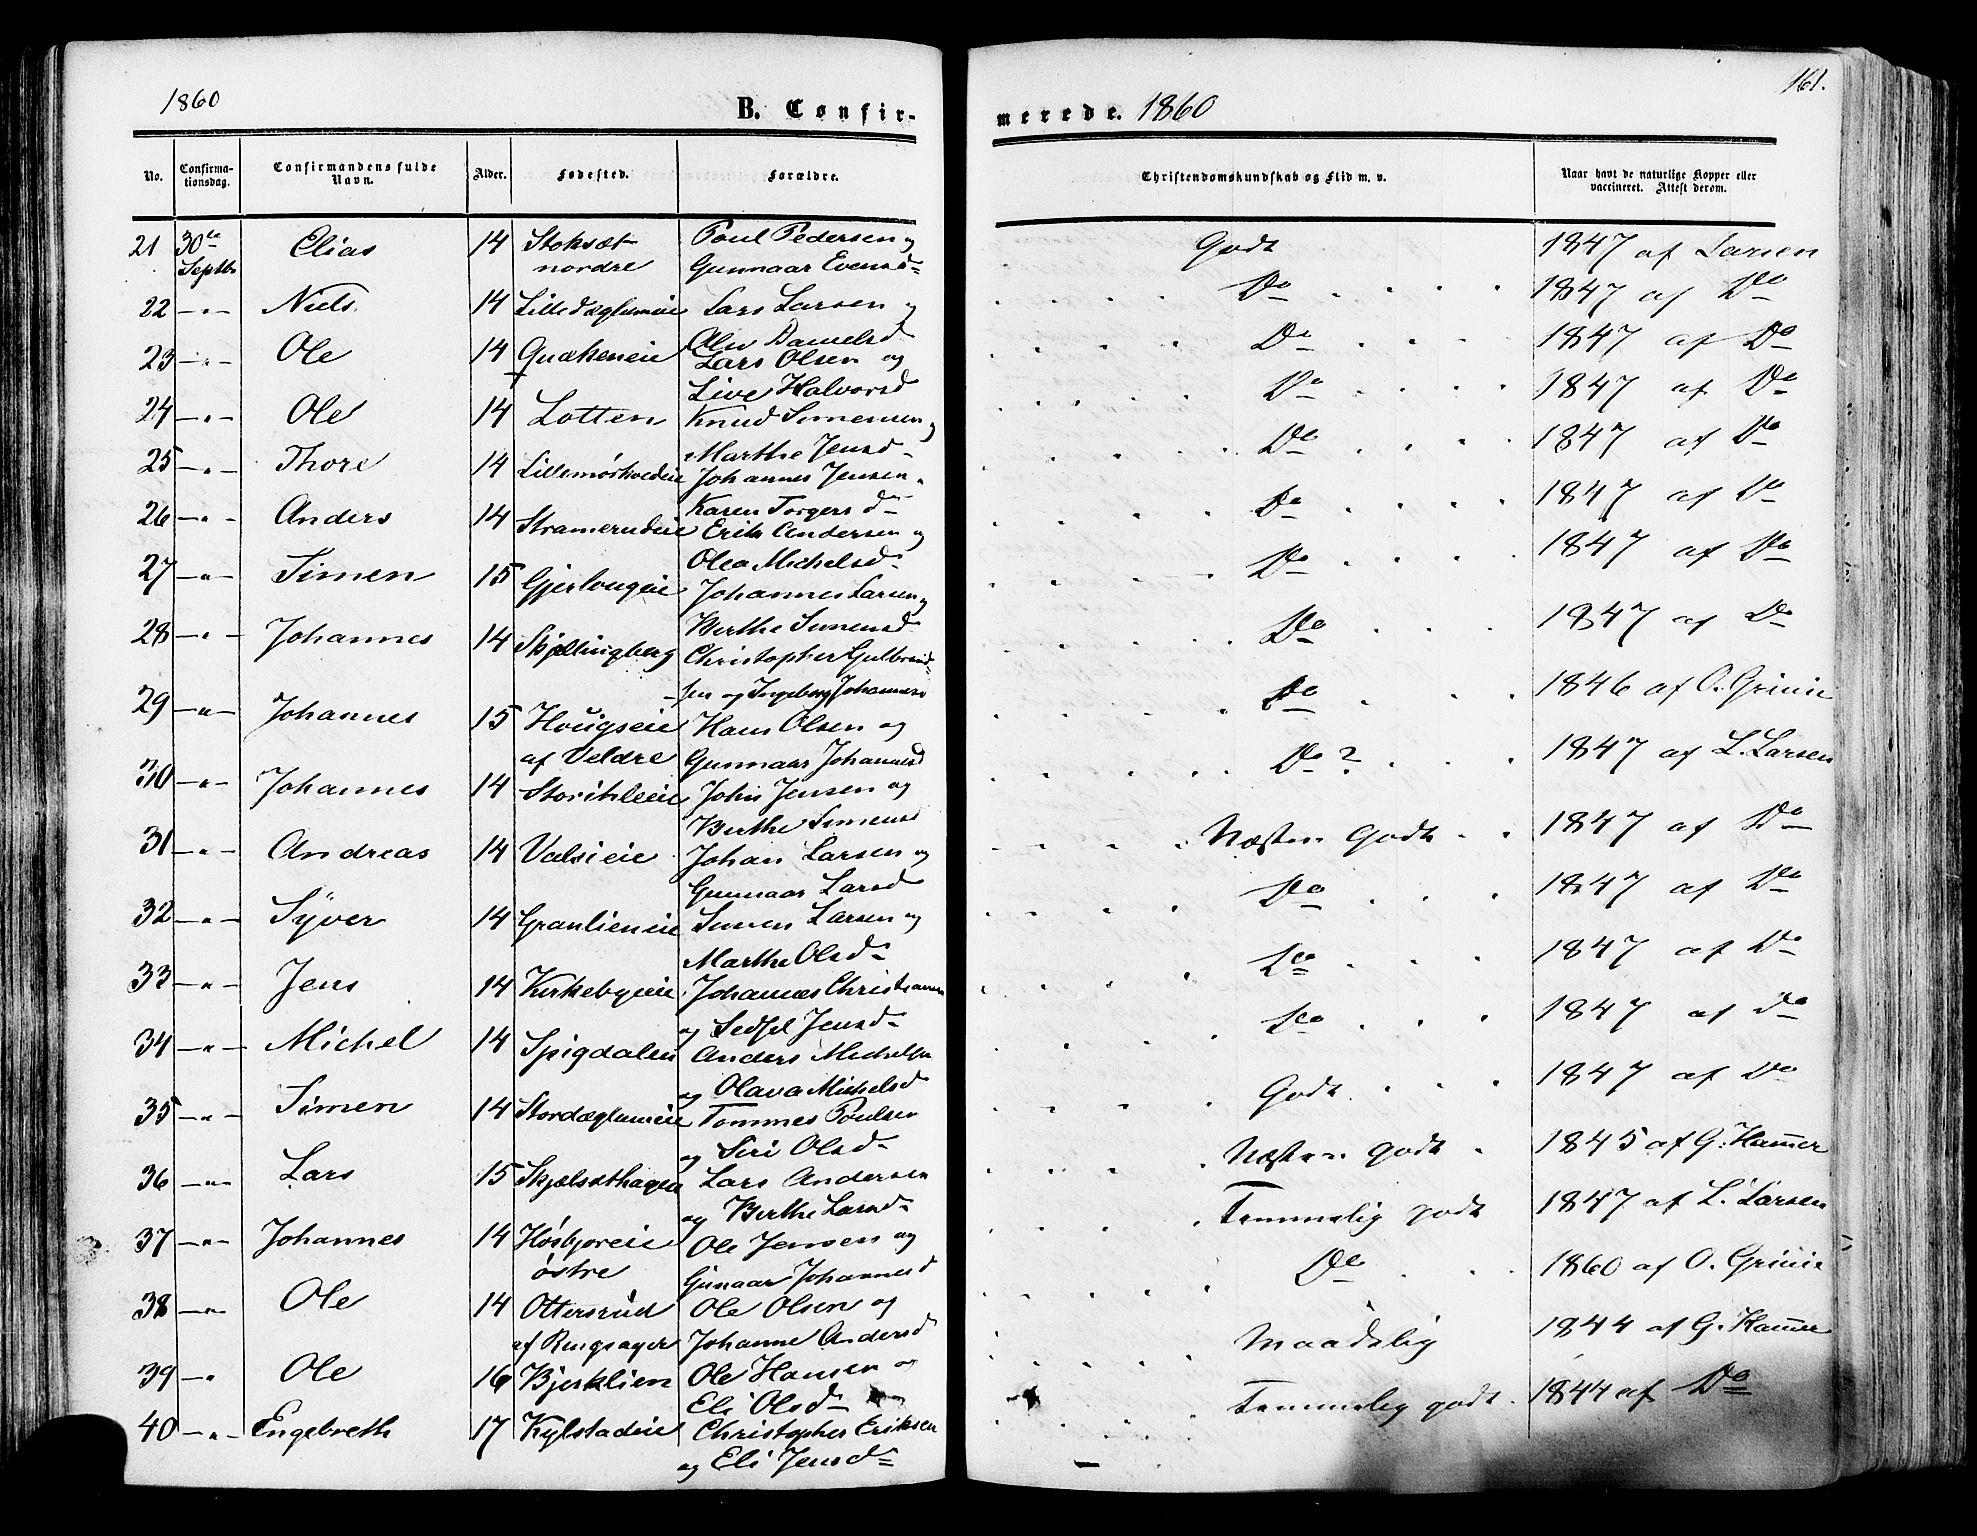 1860
B. Confir-
No. Confirma-tionsdag. Confirmandens fulde Navn. Alder. Fødested. Forældre.
21 30te Septbr Elias 14 Stoksæt nordre Poul Pedersen og Gunnaar Evensd-
22 -"- Niels 14 Lille Dæglumeie Lars Larsen og Danielsd
23 -"- Ole 14 Quækeneie Lars Olsen og Live Halvorsd
24 -"- Ole 14 Lotten Knud Simensen og Marthe Jensd-
25 -"- Thore 14 Lillemørkvedeie Johannes Jensen. Karen Torgersd-
26 -"- Anders 14 Stramerudeie Erik Andersen og Olea Michelsd-
27 -"- Simen 15 Gjerlougeie Johannes Larsen og Berthe Simensd
28 -"- Johannes 14 Skjellingberg Christopher Gulbrandsen og Ingeborg Johannesd
29 -"- Johannes 15 Hougseie af Veldre Hans Olsen og Gunnaar Johannesd
30 -"- Johannes 14 John Jensen og Berthe Simensd
31 -"- Andreas 14 Valsieie Johan Larsen og Gunnaar Larsd
32 -"- Syver 14 Granlieneie Simen Larsen og Marthe Olsd-
33 -"- Jens 14 Kirkebyeie Johannes Christiansen og Sedsel Jensd-
34 -"- Michel 14 Spigdalen Anders Michelsen og Olava Michelsd
35 -"- Simen 14 Stordæglumeie Tommes Poulsen og Siri Olsd-
36 -"- Lars 15 Skjælsethagen Lars Andersen og Berthe Larsd-
37 -"- Johannes 14 Høsbjoreie østre Ole Jensen og Gunaar Johannesd
38 -"- Ole 14 Ottersrud af Ringsager Ole Olsen og Johanne Andersd
39 -" Ole 16 Bjerklien Ole Hansen og Eli Olsd-
40 -"- Engebreth 17 Kylstadeie Christopher Eriksen og Eli Jensd-
161.
merede. 1860
Christendomskundskab og Flid m. v. Naar havt de naturlige Kopper eller vaccineret. Attest derom.
Godt 1847 af Larsen
Do 1847 af Do
Do 1847 af Do
Do 1847 af Do
Do 1847 af Do
Do 1847 af Do
Do 1847 af Do
Do 1847 af Do
Do 1846 af O. Grinie
Do? 1847 af L. Larsen
Næsten Godt 1847 af Do
Do 1847 af Do
Do 1847 af Do
Do 1847 af do
Godt 1847 af Do
Næsten godt 1845 af G. Hammer
Temmelig godt 1847 af L. Larsen
Do 1860 af O. Grinie
Maadelig 1844 af G. Hammer
Temmelig godt. 1844 af Do